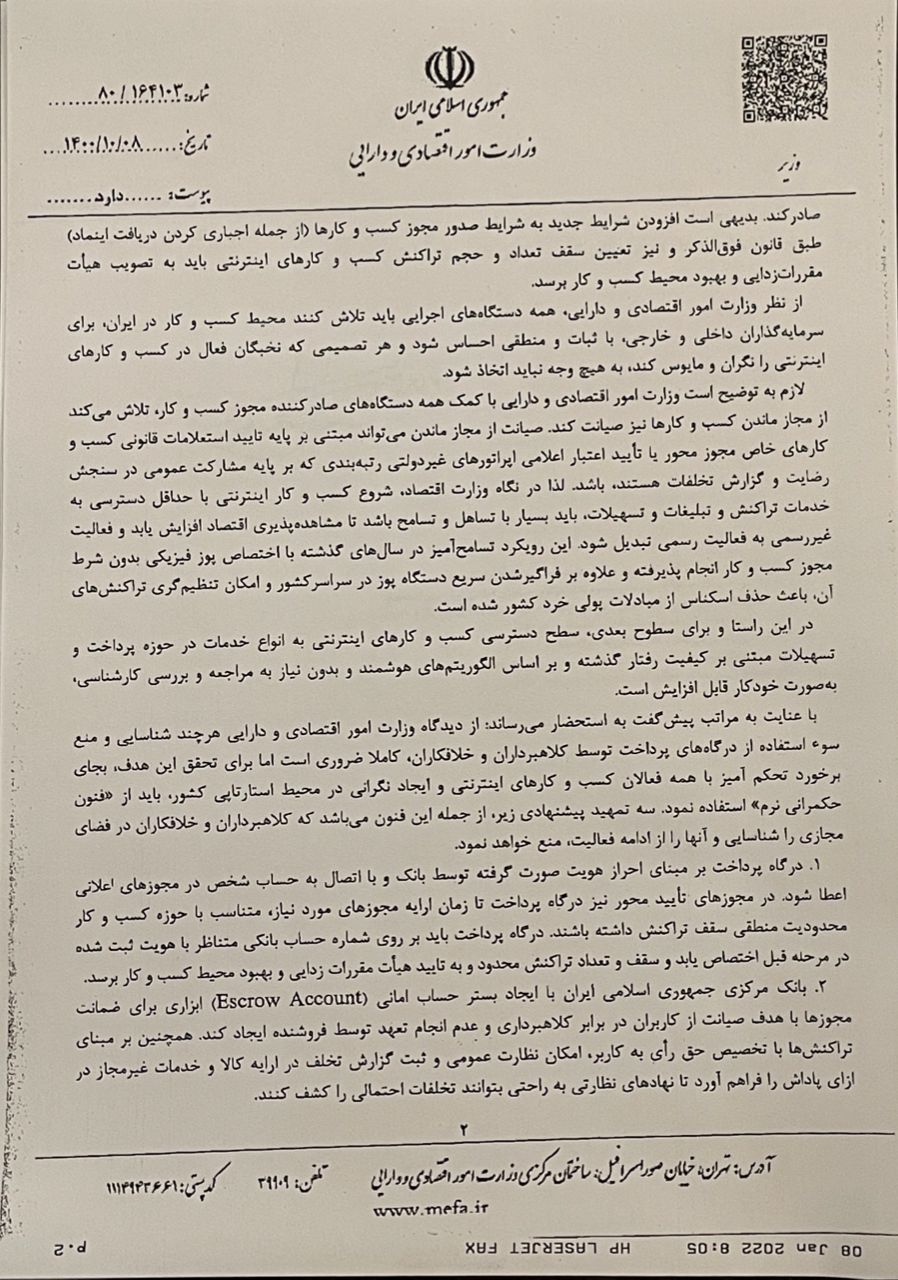 جمهوری اسلامی ایران
وزارت امور اقتصادی و دارایی
وزیر
شماره: ۸۰/۱۶۴۱۰۳
تاریخ: ۱۴۰۰/۱۰/۰۸
پیوست: ......دارد.......
صادر کند. بدیهی است افزودن شرایط جدید به شرایط صدور مجوز کسب و کارها (از جمله اجباری کردن دریافت اینماد)
طبق قانون فوق‌الذکر و نیز تعیین سقف تعداد و حجم تراکنش کسب و کارهای اینترنتی باید به تصویب هیأت
مقررات‌زدایی و بهبود محیط کسب و کار برسد.
از نظر وزارت امور اقتصادی و دارایی، همه دستگاه‌های اجرایی باید تلاش کنند محیط کسب و کار در ایران، برای
سرمایه‌گذاران داخلی و خارجی، با ثبات و منطقی احساس شود و هر تصمیمی که نخبگان فعال در کسب و کارهای
اینترنتی را نگران و مایوس کند، به هیچ وجه نباید اتخاذ شود.
لازم به توضیح است وزارت امور اقتصادی و دارایی با کمک همه دستگاه‌های صادرکننده مجوز کسب و کار، تلاش می‌کند
از مجاز ماندن کسب و کارها نیز صیانت کند. صیانت از مجاز ماندن می‌تواند مبتنی بر پایه تایید استعلامات قانونی کسب و
کارهای خاص مجوز محور یا تأیید اعتبار اعلامی اپراتورهای غیردولتی رتبه‌بندی که بر پایه مشارکت عمومی در سنجش
رضایت و گزارش تخلفات هستند، باشد. لذا در نگاه وزارت اقتصاد، شروع کسب و کار اینترنتی با حداقل دسترسی به
خدمات تراکنش و تبلیغات و تسهیلات، باید بسیار با تساهل و تسامح باشد تا مشاهده‌پذیری اقتصاد افزایش یابد و فعالیت
غیررسمی به فعالیت رسمی تبدیل شود. این رویکرد تسامح‌آمیز در سال‌های گذشته با اختصاص پوز فیزیکی بدون شرط
مجوز کسب و کار انجام پذیرفته و علاوه بر فراگیرشدن سریع دستگاه پوز در سراسرکشور و امکان تنظیم‌گری تراکنش‌های
آن، باعث حذف اسکناس از مبادلات پولی خرد کشور شده است.
در این راستا و برای سطوح بعدی، سطح دسترسی کسب و کارهای اینترنتی به انواع خدمات در حوزه پرداخت و
تسهیلات مبتنی بر کیفیت رفتار گذشته و بر اساس الگوریتم‌های هوشمند و بدون نیاز به مراجعه و بررسی کارشناسی،
به‌صورت خودکار قابل افزایش است.
با عنایت به مراتب پیش‌گفت به استحضار می‌رساند: از دیدگاه وزارت امور اقتصادی و دارایی هرچند شناسایی و منع
سوء استفاده از درگاه‌های پرداخت توسط کلاهبرداران و خلافکاران، کاملا ضروری است اما برای تحقق این هدف، بجای
برخورد تحکم آمیز با همه فعالان کسب و کارهای اینترنتی و ایجاد نگرانی در محیط استارتاپی کشور، باید از «فنون
حکمرانی نرم» استفاده نمود. سه تمهید پیشنهادی زیر، از جمله این فنون می‌باشد که کلاهبرداران و خلافکاران در فضای
مجازی را شناسایی و آنها را از ادامه فعالیت، منع خواهد نمود.
۱. درگاه پرداخت بر مبنای احراز هویت صورت گرفته توسط بانک و با اتصال به حساب شخص در مجوزهای اعلانی
اعطا شود. در مجوزهای تأیید محور نیز درگاه پرداخت تا زمان ارایه مجوزهای مورد نیاز، متناسب با حوزه کسب و کار
محدودیت منطقی سقف تراکنش داشته باشند. درگاه پرداخت باید بر روی شماره حساب بانکی متناظر با هویت ثبت شده
در مرحله قبل اختصاص یابد و سقف و تعداد تراکنش محدود و به تایید هیأت مقررات زدایی و بهبود محیط کسب و کار برسد.
۲. بانک مرکزی جمهوری اسلامی ایران با ایجاد بستر حساب امانی (Escrow Account) ابزاری برای ضمانت
مجوزها با هدف صیانت از کاربران در برابر کلاهبرداری و عدم انجام تعهد توسط فروشنده ایجاد کند. همچنین بر مبنای
تراکنش‌ها با تخصیص حق رأی به کاربر، امکان نظارت عمومی و ثبت گزارش تخلف در ارایه کالا و خدمات غیرمجاز در
ازای پاداش را فراهم آورد تا نهادهای نظارتی به راحتی بتوانند تخلفات احتمالی را کشف کنند.
۲
آدرس: تهران، خیابان صور اسرافیل، ساختمان مرکزی وزارت امور اقتصادی و دارایی تلفن: ۳۹۹۰۹ کدپستی: ۱۱۱۴۹۴۳۶۶۱
www.mefa.ir
08 Jan 2022 8:05 HP LASERJET FAX p.2